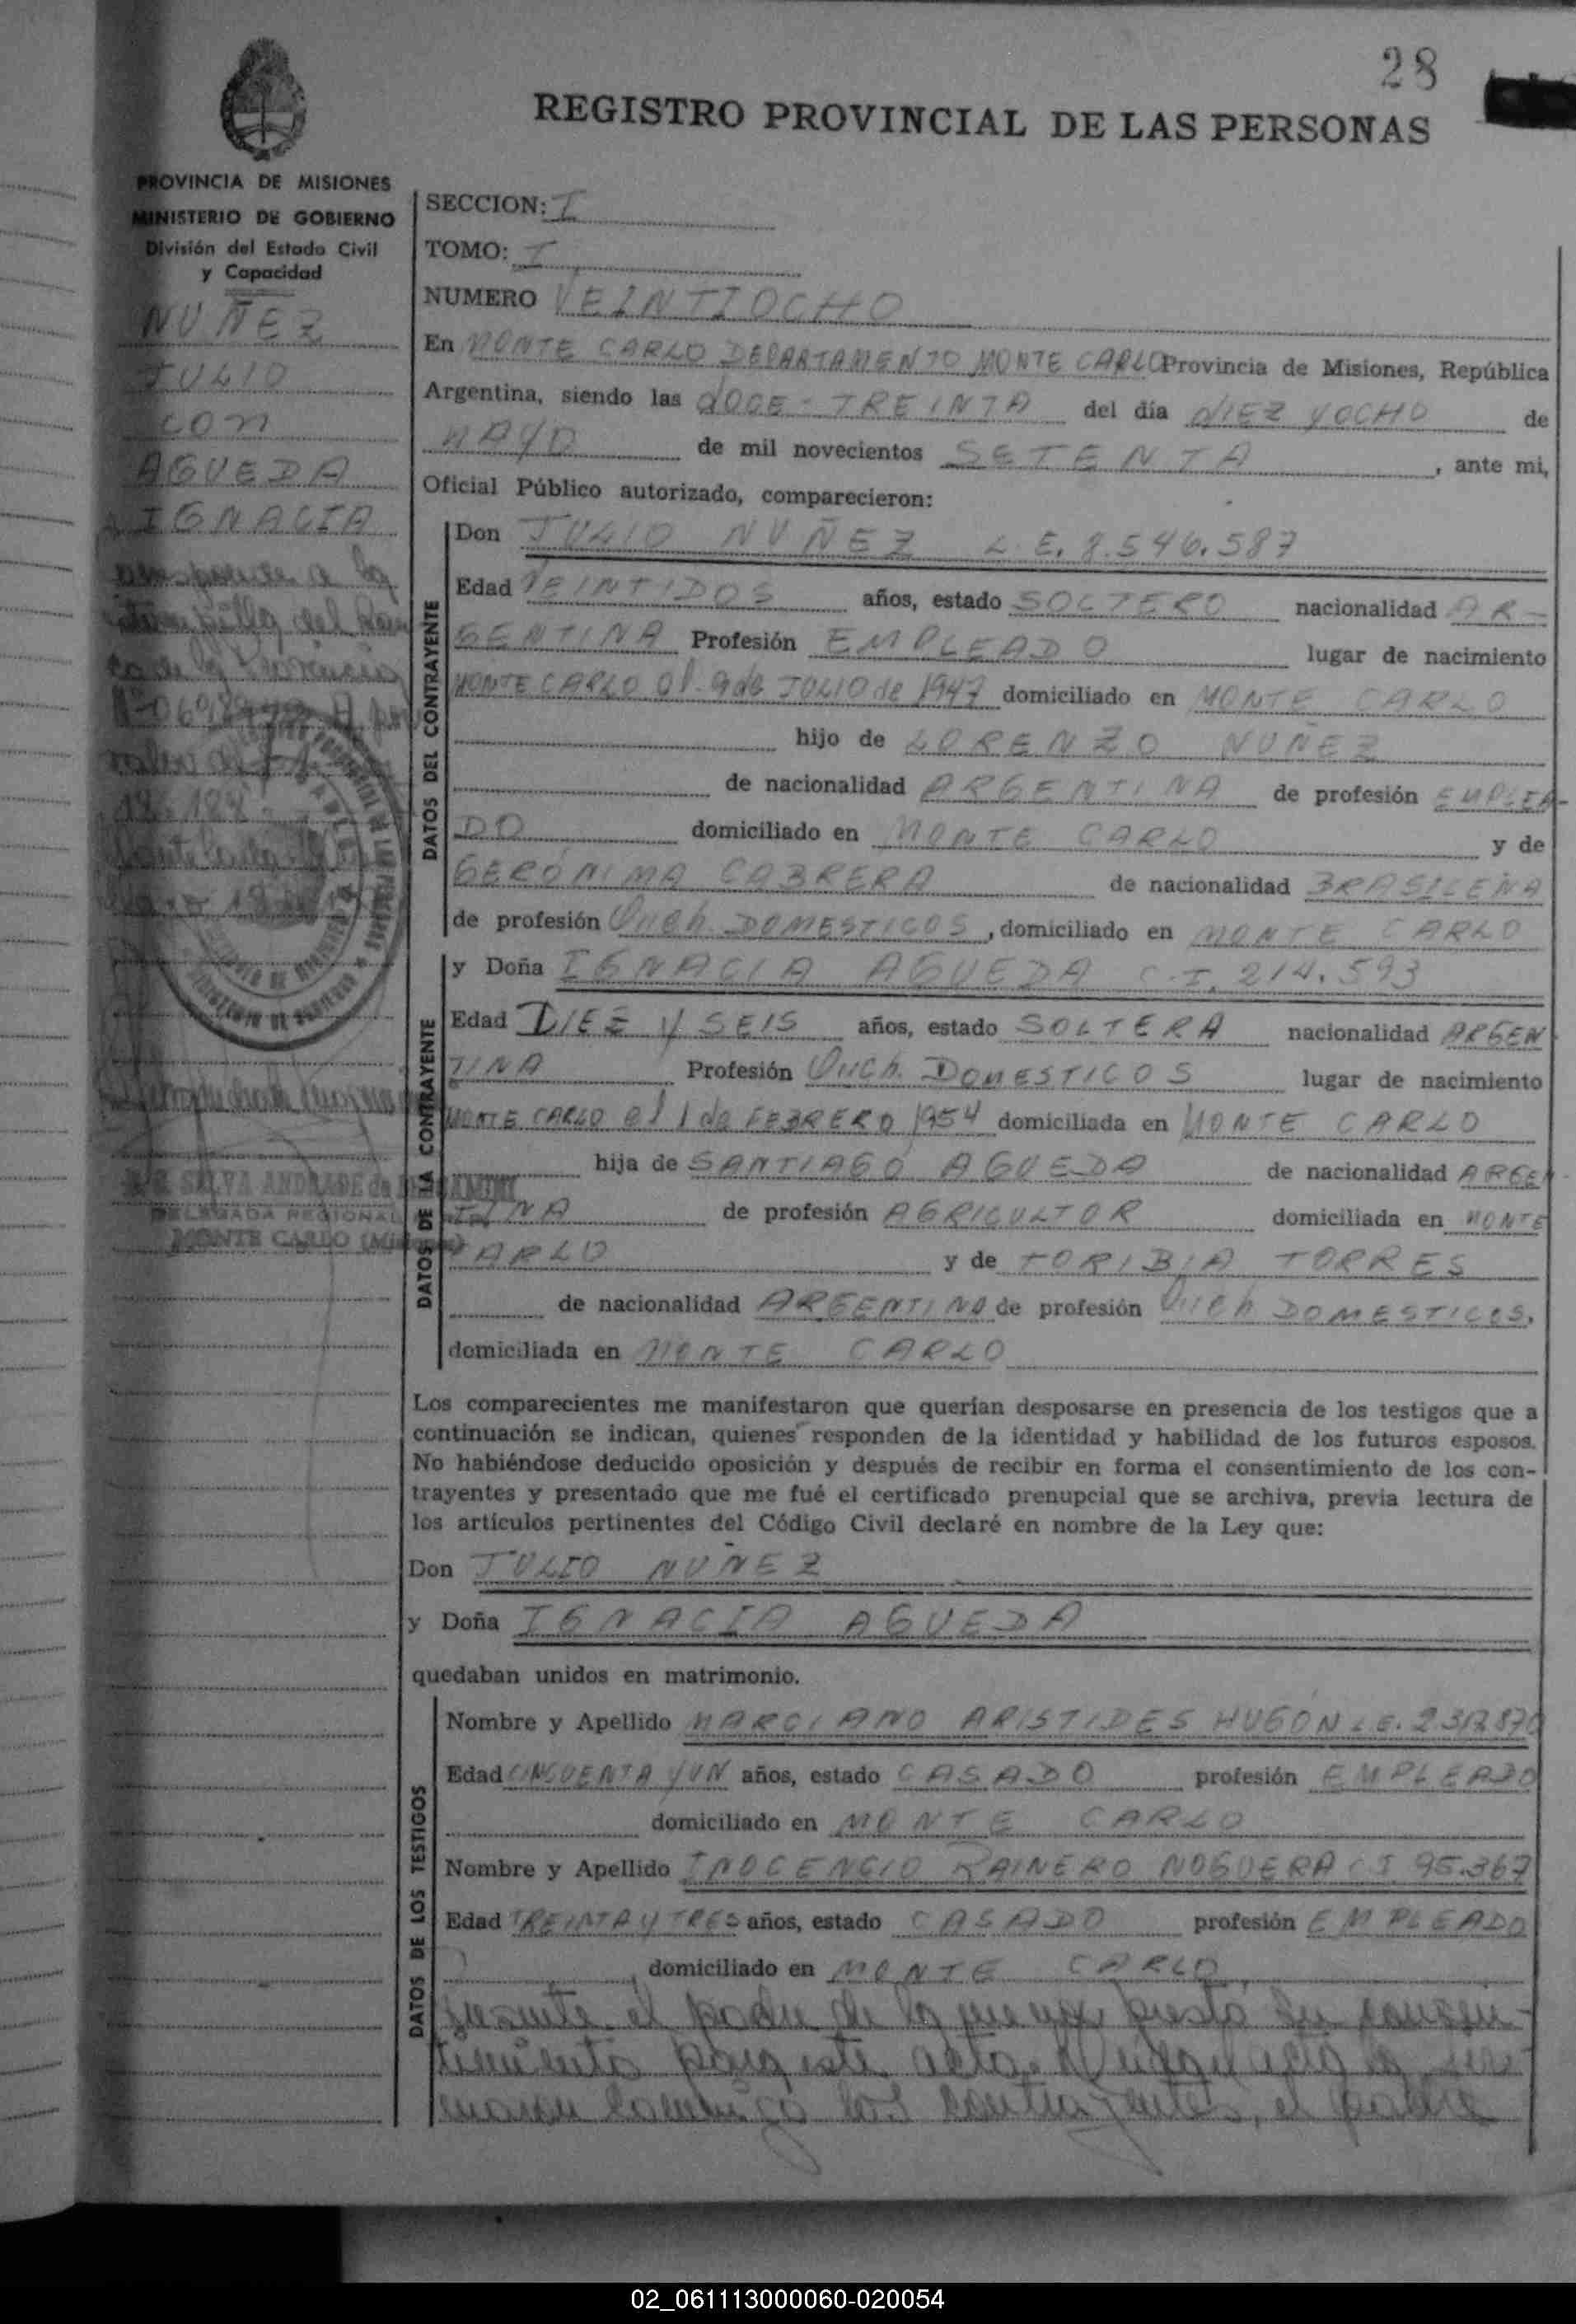 28
REGISTRO PROVINCIAL DE LAS PERSONAS
PROVINCIA DE MISIONES
MINISTERIO DE GOBIERNO
División del Estado Civil
y Capacidad
NUÑEZ
JULIO
con
AGUEDA
IGNACIA
SECCION: I
TOMO: I
NUMERO VEINTIOCHO
En MONTE CARLO DEPARTAMENTO MONTE CARLO Provincia de Misiones, República
Argentina, siendo las DOCE - TREINTA del día DIEZ Y OCHO de
MAYO de mil novecientos SETENTA, ante mi,
Oficial Público autorizado, comparecieron:
DATOS DEL CONTRAYENTE
Don JULIO NUÑEZ L E. 8.546.587
Edad VEINTIDOS años, estado SOLTERO nacionalidad AR-
GENTINA Profesión EMPLEADO lugar de nacimiento
MONTE CARLO el 9 de JULIO de 1947 domiciliado en MONTE CARLO
hijo de LORENZO NUÑEZ
de nacionalidad ARGENTINA de profesión EMPLEA-
DO domiciliado en MONTE CARLO y de
GERÓNIMA CABRERA de nacionalidad BRASILEÑA
de profesión Queh. DOMESTICOS, domiciliado en MONTE CARLO
DATOS DE LA CONTRAYENTE
y Doña IGNACIA AGUEDA C.I. 214.593
Edad DIEZ Y SEIS años, estado SOLTERA nacionalidad ARGEN
TINA Profesión Queh. DOMESTICOS lugar de nacimiento
MONTE CARLO el 1 de FEBRERO 1954 domiciliada en MONTE CARLO
hija de SANTIAGO AGUEDA de nacionalidad ARGEN-
TINA de profesión AGRICULTOR domiciliada en MONTE
CARLO y de TORIBIA TORRES
de nacionalidad ARGENTINA de profesión Queh DOMESTICOS.
domiciliada en MONTE CARLO
SILVA ANDRADE de
DELEGADA REGIONAL
MONTE CARLO
Los comparecientes me manifestaron que querían desposarse en presencia de los testigos que a
continuación se indican, quienes responden de la identidad y habilidad de los futuros esposos.
No habiéndose deducido oposición y después de recibir en forma el consentimiento de los con-
trayentes y presentado que me fué el certificado prenupcial que se archiva, previa lectura de
los artículos pertinentes del Código Civil declaré en nombre de la Ley que:
Don JULIO NUÑEZ
y Doña IGNACIA AGUEDA
quedaban unidos en matrimonio.
DATOS DE LOS TESTIGOS
Nombre y Apellido MARCIANO ARISTIDES HUGÓN L.E.
Edad CINCUENTA Y UN años, estado CASADO profesión EMPLEADO
domiciliado en MONTE CARLO
Nombre y Apellido INOCENCIO RAINERO NOGUERA C I 95.367
Edad TREINTA Y TRES años, estado CASADO profesión EMPLEADO
domiciliado en MONTE CARLO,
presente el padre de la menor presta su consen-
timiento para este acto. la fir-
maron conmigo los contrayentes, el padre
02_061113000060-020054